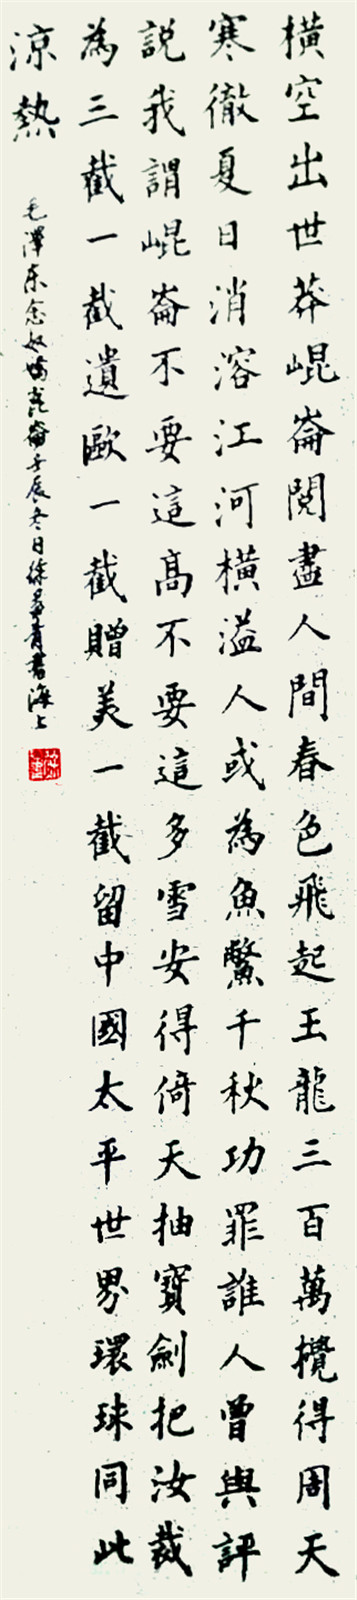 橫空出世莽崐崙閱盡人間春色飛起王龍三百萬攪得周天
寒徹夏日消溶江河橫溢人或為魚鱉千秋功罪誰人曾與評
説我謂崐崙不要這高不要這多雪安得倚天抽寶劍把汝裁
為三截一截遺歐一截贈美一截留中國太平世界環球同此
涼熱
毛澤东念奴嬌崑崙壬辰冬日徐青書海上